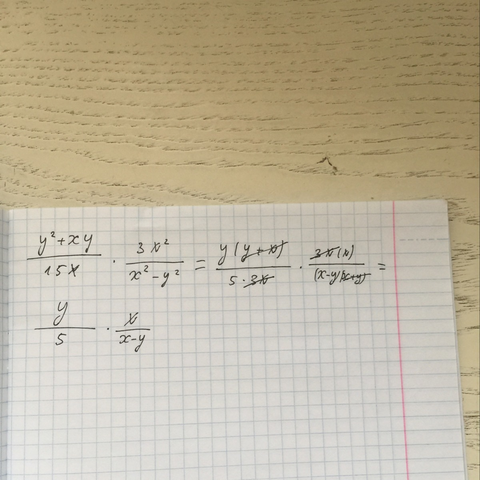 y²+xy / 15x · 3x² / x²-y² = y(y+x) / 5·3x · 3x(x) / (x-y)(x+y) =
y / 5 · x / x-y